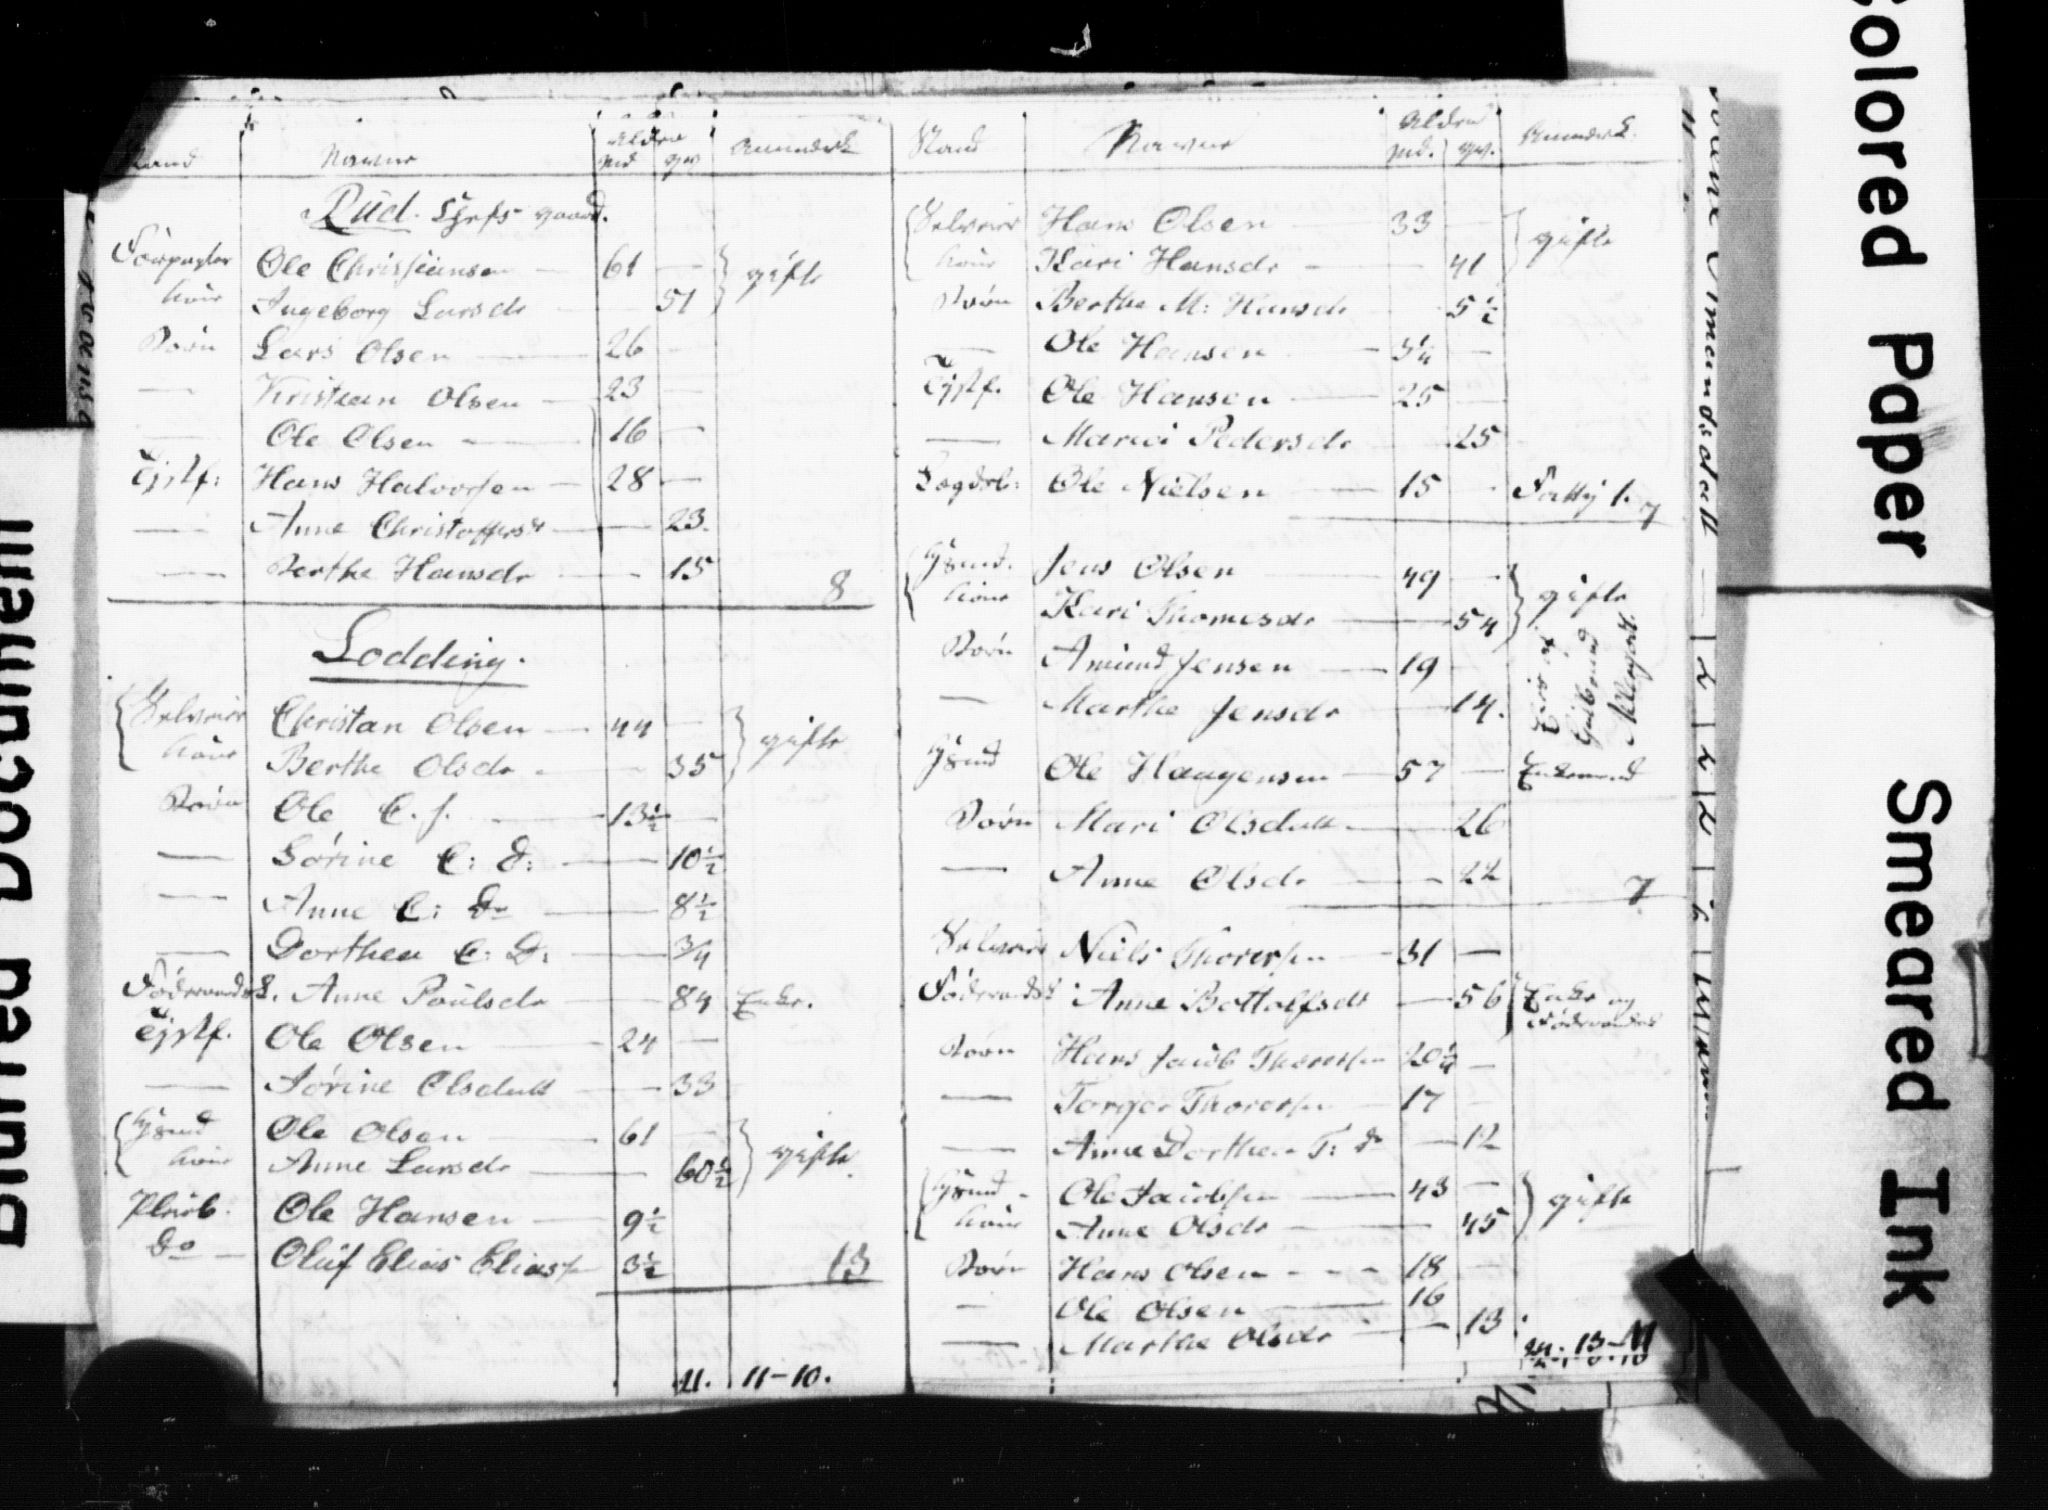 Stand Navne Alder Anmærk
md qv
Rud. Chefsgaard.
Forpagter Ole Christiansen — 61 — } gifte
kone Ingeborg Larsdr — 51
Börn Lars Olsen — 26 —
— Kristian Olsen — 23 —
— Ole Olsen — 16 —
Tjstf: Hans Halvorsen — 28 —
— Anne Christoffersdr — 23.
— Berthe Hansdr — 15
8
Lodding.
{ Selveier Christan Olsen — 44 — } gifte
kone Berthe Olsdr — 35
Börn Ole C. S. — 13½ —
— Sörine C: D: — 10½
— Anne C: Dr — 8½
— Dorthea C: D: — 3/4
Föderaadsk. Anne Poulsdr — 84 Enke.
Tjstf. Ole Olsen — 24 —
— Sörine Olsdatt — 33
{ Huusmd Ole Olsen — 61 — } gifte
kone Anne Larsdr — 60½
Pleieb. Ole Hansen — 9½
do — Oluf Elias Eliass — 3½
13
21. 11-10.
Stand Navne Alder Anmærk.
md. qv.
{ Selveier Hans Olsen — 33 — } gifte
kone Kari Hansdr — 41
Börn Berthe M: Hansdr — 5½
— Ole Hansen — 3¼ —
Tjstf. Ole Hansen — 25 —
— Maria Pedersdr — 25
Lægdsl: Ole Nielsen — 15 - Fattig l.
7
{ Huusmd. Jens Olsen — 49 — } gifte
kone Kari Thomesdr — 54
Börn Amund Jensen — 19
— Marthe Jensdr — 14.
Gulbrand
Huusmd Ole Haagensen — 57 — Enkemand
Börn Mari Olsdatt — 26
— Anne Olsdr — 22
7
Selveier Niels Thorersen — 31 —
Föderaadsk: Anne Bottolfsdt — 56 { Enke og
Föderaadsk
Börn Hans Jacob Thorersen 20¼ —
— Torger Thorersen — 17 -
— Anne Dorthea T: dr — 12
{ Huusmd - Ole Jacobsen — 43 — } gifte
kone Anne Olsdr — 45
Börn Hans Olsen - - - 18 —
— Ole Olsen — 16
— Marthe Olsdr — 13
24. 13-11
Colored Paper
Smeared Ink
Blurred Document